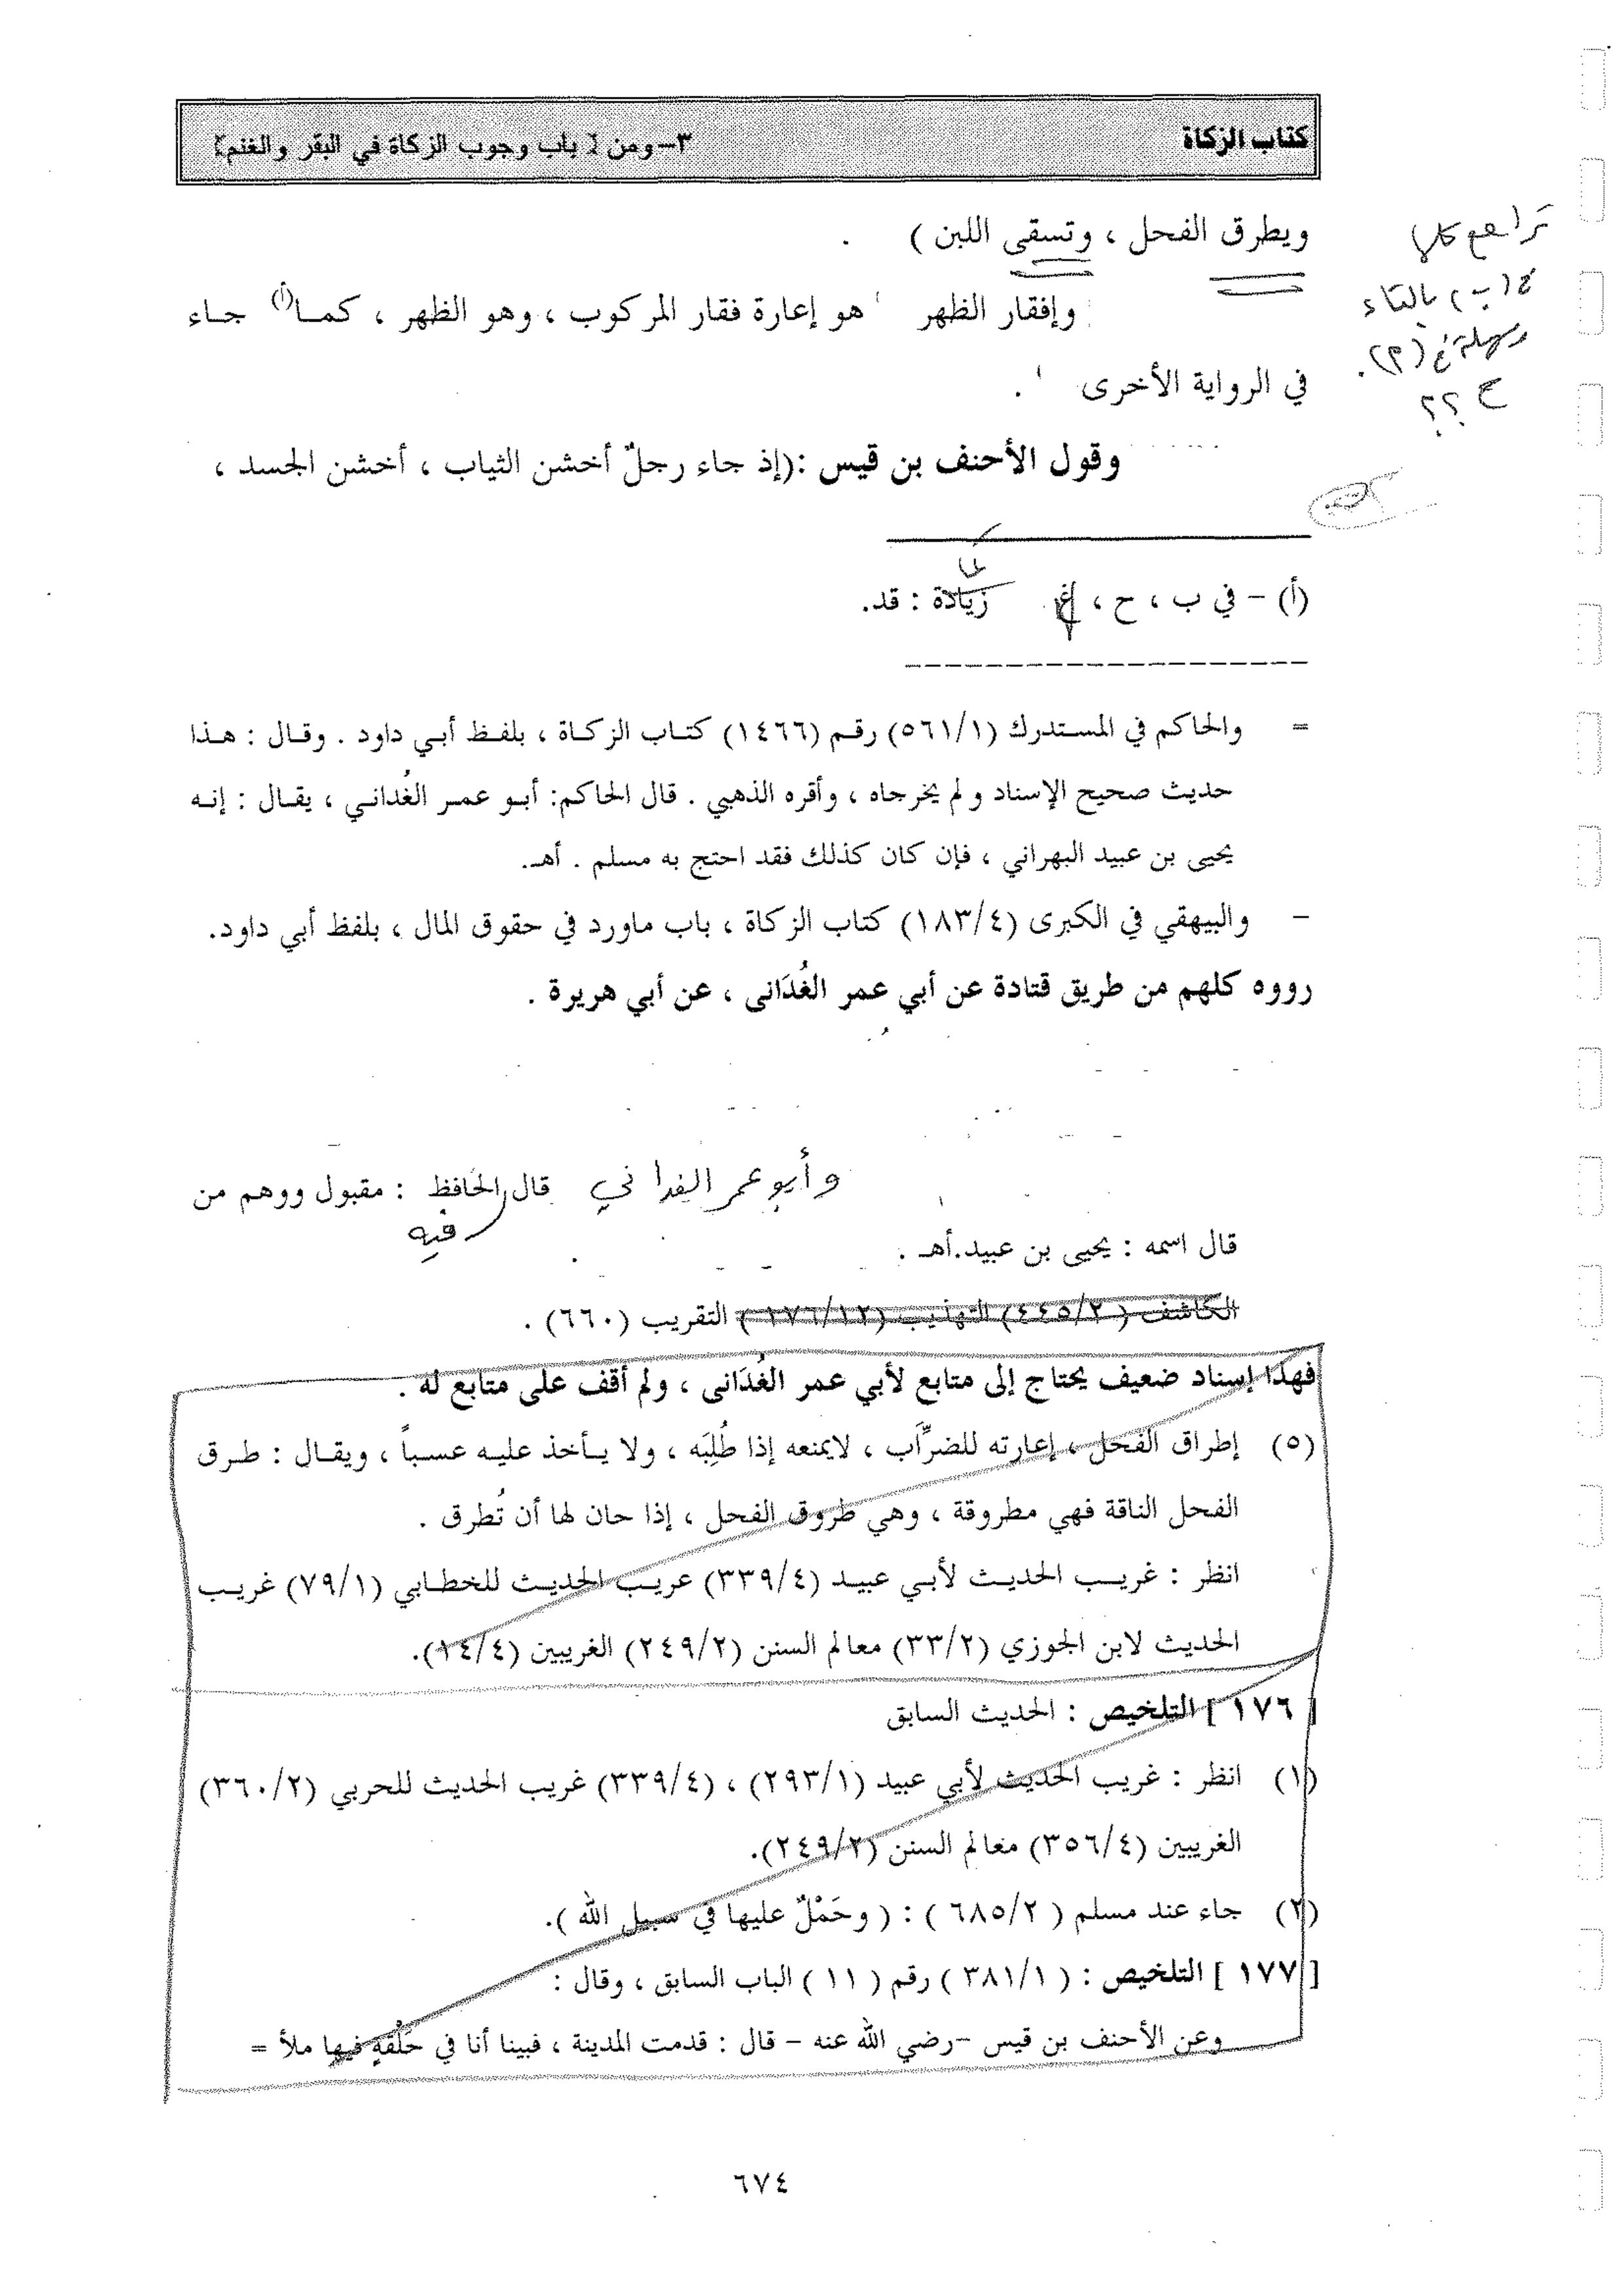 كتاب الزكاة ٣- ومن [ باب وجوب الزكاة في البقر والغنم]
ويطرق الفحل ، وتسقى اللبن ) .
تراجع كلها
(ب) بالتاء
(م).
ح ؟؟
وإفقار الظهر هو إعارة فقار المركوب ، وهو الظهر ، كمـا(أ) جـاء
في الرواية الأخرى .
وقول الأحنف بن قيس :(إذ جاء رجلٌ أخشن الثياب ، أخشن الجسد ،
(أ) - في ب ، ح ، غ زيادة : قد.
= والحاكم في المستدرك (٥٦١/١) رقم (١٤٦٦) كتاب الزكاة ، بلفظ أبي داود . وقال : هذا
حديث صحيح الإسناد ولم يخرجاه ، وأقره الذهبي . قال الحاكم: أبو عمر الغُداني ، يقال : إنه
يحيى بن عبيد البهراني ، فإن كان كذلك فقد احتج به مسلم . أهـ.
- والبيهقي في الكبرى (١٨٣/٤) كتاب الزكاة ، باب ماورد في حقوق المال ، بلفظ أبي داود.
رووه كلهم من طريق قتادة عن أبي عمر الغُدَانى ، عن أبي هريرة .
وأبو عمر الغداني قال الحافظ : مقبول ووهم من
فيه
قال اسمه : يحيى بن عبيد.أهـ .
الكاشف (٤٤٥/٢) التهذيب (١٧٦/١٢) التقريب (٦٦٠) .
فهذا إسناد ضعيف يحتاج إلى متابع لأبي عمر الغُدَانى ، ولم أقف على متابع له .
(٥) إطراق الفحل ، إعارته للضرِّاب ، لايمنعه إذا طُلِبَه ، ولا يـأخذ عليه عسباً ، ويقال : طرق
الفحل الناقة فهي مطروقة ، وهي طروق الفحل ، إذا حان لها أن تُطرق .
انظر : غريب الحديث لأبي عبيد (٣٣٩/٤) عريب الحديث للخطابي (٧٩/١) غريب
الحديث لابن الجوزي (٣٣/٢) معالم السنن (٢٤٩/٢) الغريبين (١٤/٤).
[ ١٧٦ ] التلخيص : الحديث السابق
(١) انظر : غريب الحديث لأبي عبيد (٢٩٣/١) ، (٣٣٩/٤) غريب الحديث للحربي (٣٦٠/٢)
الغريبين (٣٥٦/٤) معالم السنن (٢٤٩/٢).
(٢) جاء عند مسلم ( ٦٨٥/٢ ) : ( وحَمْلٌ عليها في سبيل الله ).
[ ١٧٧ ] التلخيص : ( ٣٨١/١ ) رقم ( ١١ ) الباب السابق ، وقال :
وعن الأحنف بن قيس -رضي الله عنه - قال : قدمت المدينة ، فبينا أنا في حَلْقةٍ فيها ملأ =
٦٧٤